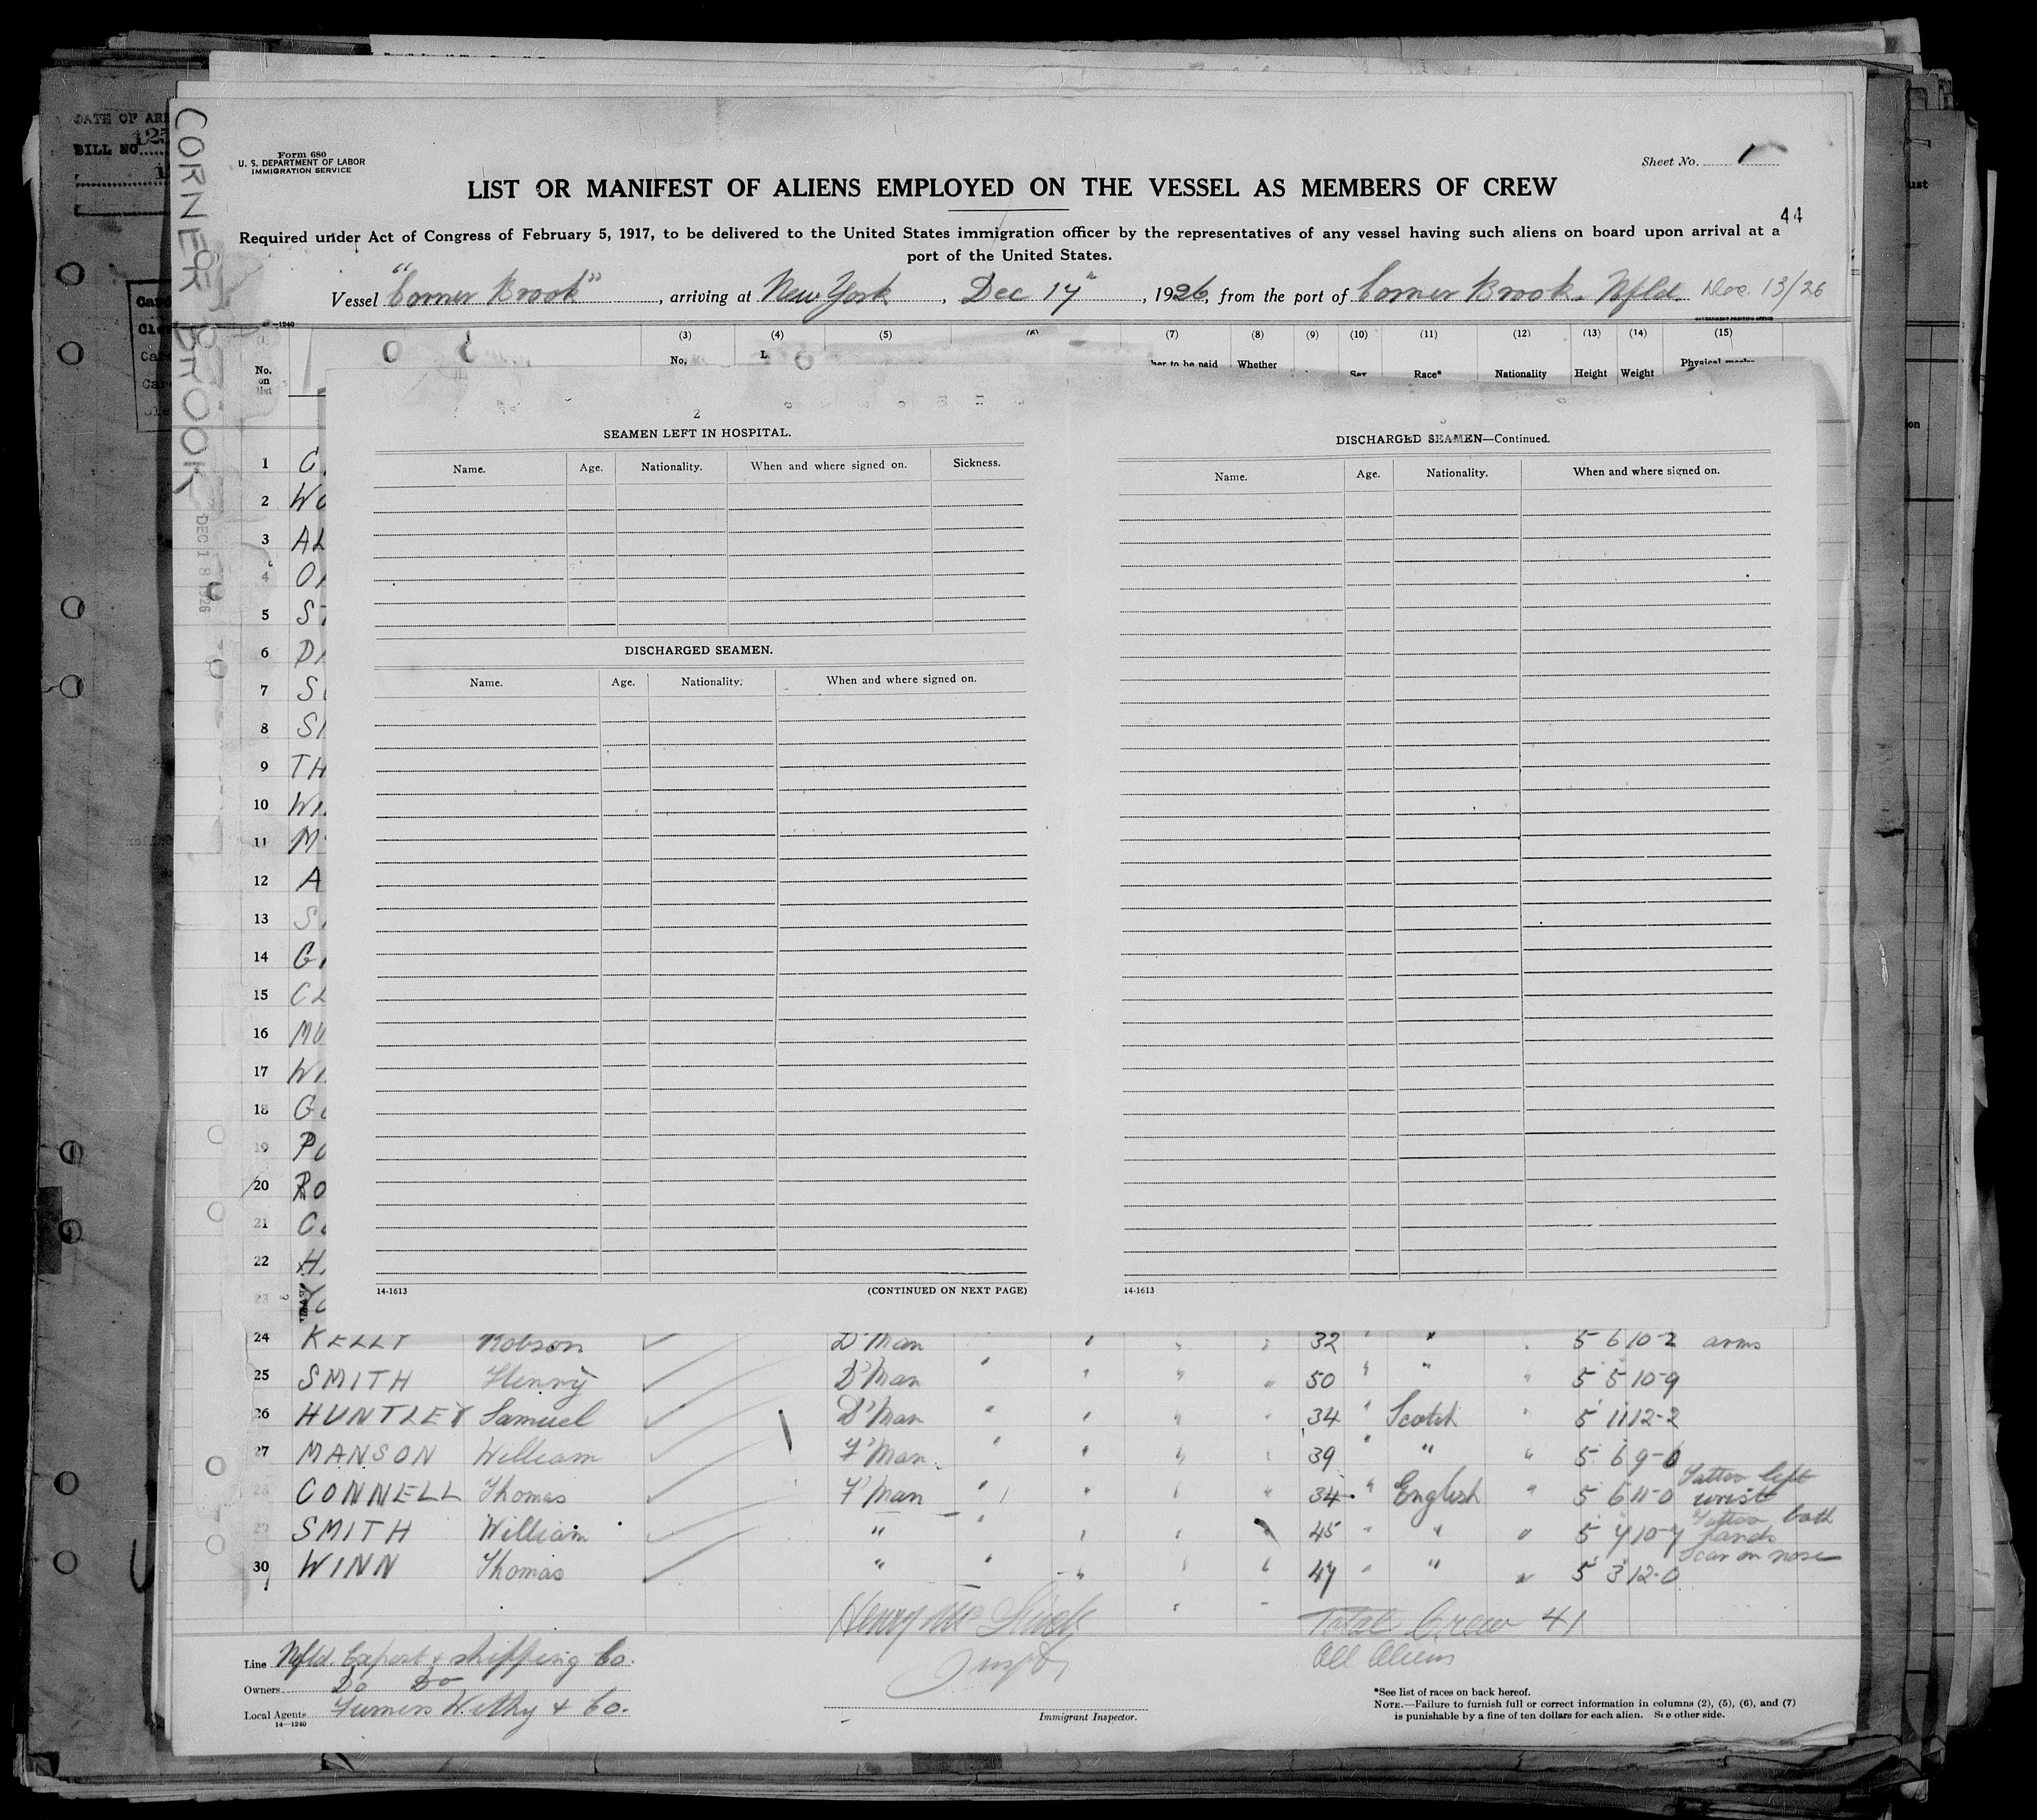 DATE OF AR
BILL NO
CORNER BROOK
DEC 18 1926
Form 680
U. S. DEPARTMENT OF LABOR
IMMIGRATION SERVICE
Sheet No. 1
LIST OR MANIFEST OF ALIENS EMPLOYED ON THE VESSEL AS MEMBERS OF CREW
44
Required under Act of Congress of February 5, 1917, to be delivered to the United States immigration officer by the representatives of any vessel having such aliens on board upon arrival at a
port of the United States.
Vessel "Corner Brook", arriving at New York, Dec 17", 1926, from the port of Corner Brook. Nfld Dec. 13/26
(3) (4) (5) (6) (7) (8) (9) (10) (11) (12) (13) (14) (15)
No. on list No. L her to be paid Whether Sex Race* Nationality Height Weight Physical marks
2
SEAMEN LEFT IN HOSPITAL.
Name. Age. Nationality. When and where signed on. Sickness.
DISCHARGED SEAMEN.
Name. Age. Nationality. When and where signed on.
14-1613 (CONTINUED ON NEXT PAGE)
3
DISCHARGED SEAMEN—Continued.
Name. Age. Nationality. When and where signed on.
14-1613
1 C
2 WO
3 AL
4
5 S
6 D
7 S
8 S
9 TH
10 W
11 M
12 A
13 S
14 G
15 CL
16 MU
17 W
18 G
19 P
20 RO
21 C
22 H
23
24 KELLY Robson D'Man 32 " " 5 6 10-2 arms
25 SMITH Henry D'Man " " " " 50 " " " 5 5 10-9
26 HUNTLEY Samuel D'Man " " " " 34 " Scotch " 5 11 12-2
27 MANSON William F'Man " " " " 39 " " " 5 6 9-0
28 CONNELL Thomas F'Man " " " " 34 " English " 5 6 11-0 Tattoo left wrist
29 SMITH William " " " " 45 " " " 5 7 10-7 Tattoo both hands
30 WINN Thomas " " " " " 47 " " " 5 3 12-0 Scar on nose
Total Crew 41
All Aliens
Line Nfld. Export & Shipping Co.
Owners Do Do
Local Agents Furness Withy & Co.
14—1240
Immigrant Inspector.
*See list of races on back hereof.
NOTE.—Failure to furnish full or correct information in columns (2), (5), (6), and (7)
is punishable by a fine of ten dollars for each alien. See other side.